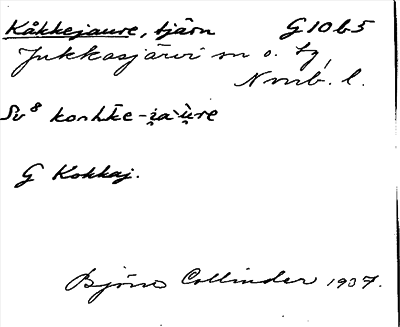 Kåkkejaure, tjärn G10b5
Jukkasjärvi sn o. tg,
Nmb. l.
Sv⁸
G Kokkaj.
Björn Collinder 1937.